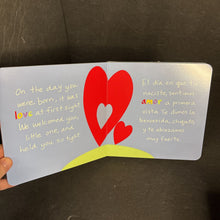 On the day you
were born, it was
love at first sight
We welcomed you,
little one, and
held you so tight
El día en que tú
naciste, sentimos
amor a primera
vista Te dimos la
bienvenida, chiquito,
y te abrazamos
muy fuerte.